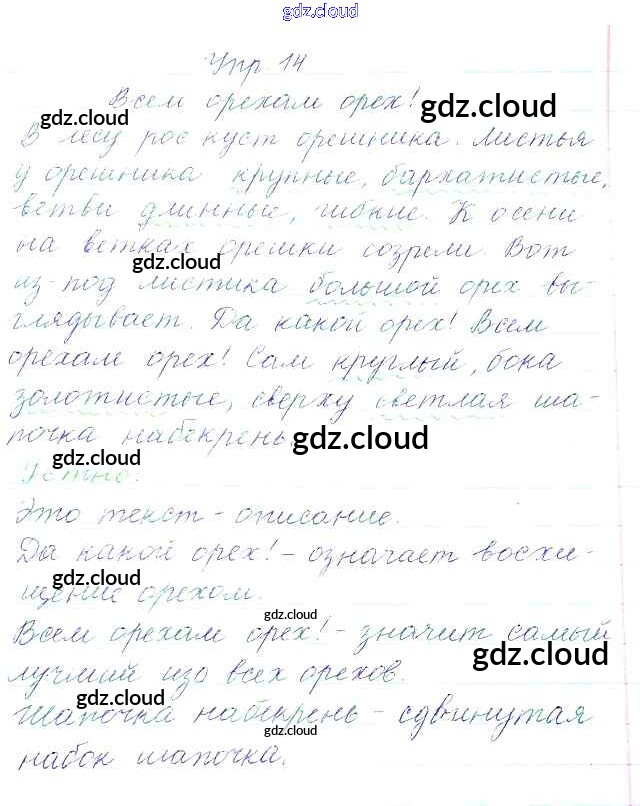 gdz.cloud
Упр. 14
Всем орехам орех! gdz.cloud
gdz.cloud
В лесу рос куст орешника. Листья
у орешника крупные, бархатистые,
gdz.cloud
ветви длинные, гибкие. К осени
на ветках орешки созрели. Вот
gdz.cloud
из-под листика большой орех вы-
глядывает. Да какой орех! Всем
орехам орех! Сам круглый, бока
gdz.cloud
золотистые, сверху светлая ша-
почка набекрень. gdz.cloud
gdz.cloud
Устно:
Это текст - описание.
Да какой орех! - означает восхи-
gdz.cloud
щение орехом.
gdz.cloud
Всем орехам орех! - значит самый
gdz.cloud
лучший изо всех орехов.
gdz.cloud
Шапочка набекрень - сдвинутая
gdz.cloud
набок шапочка.